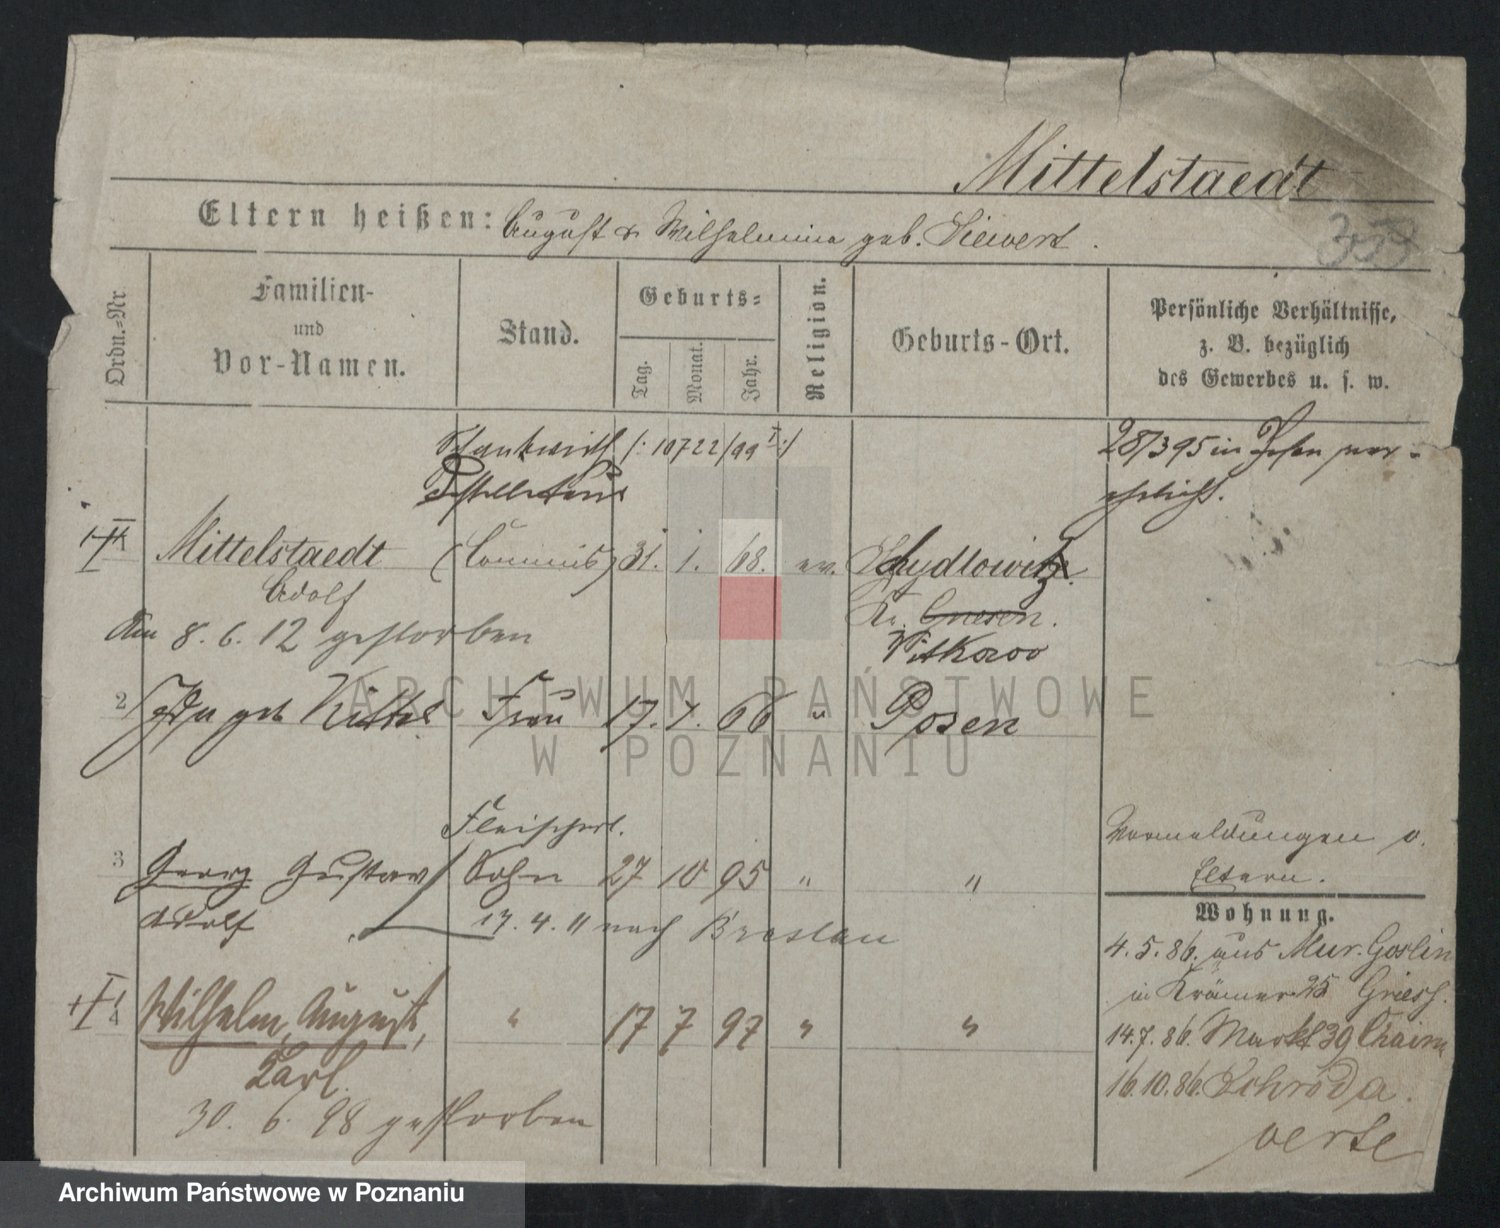 Mittelstaedt
359
Eltern heißen: August & Wilhelmine geb. Siewert.
Ordn.-Nr.
Familien-
und
Vor-Namen.
Stand.
Geburts-
Tag.
Monat.
Jahr.
Religion.
Geburts-Ort.
Persönliche Verhältnisse,
z. B. bezüglich
des Gewerbes u. s. w.
Schankwirth (: 10722/99 I :)
28/3 95 in Posen ver-
ehelicht.
Mittelstaedt (Commis) 31. 1. 68. ev. Schydlowitz
Adolf
Kr. Gnesen.
Am 8. 6. 12 gestorben
Witkowo
2 geb Kittel Frau 17. 7. 66 " Posen
ARCHIWUM PAŃSTWOWE
W POZNANIU
Fleischerl.
3 Georg Gustav Sohn 27 10 95 " "
Adolf 17. 4. 11 nach Breslau
Vormeldungen v.
Eltern.
Wohnung.
4. 5. 86. aus Mur. Goslin
in Krämer 25 Griesh.
4 Wilhelm, August, " 17 7 97 " "
Carl.
30. 6. 98 gestorben
14. 7. 86. Markt 39 Chaim
16. 10. 86. Schroda.
verte
Archiwum Państwowe w Poznaniu